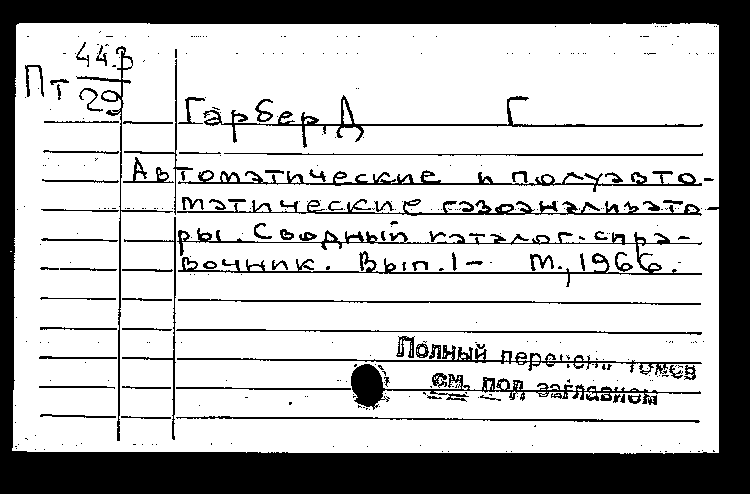 Пт 44.В
29
Гарбер, Д Г
Автоматические и полуавто-
матические газоанализато-
ры. Сводный каталог-спра-
вочник. Вып.1- М., 1966.
Полный перечень томов
см. под заглавием